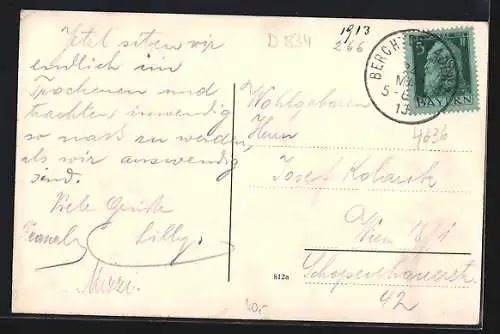 D 834
1913
266
Jetzt sitzen wir
endlich im
Trockenen und
trachten inwendig
so nass zu werden,
als wir auswendig
sind.
Viele Grüße
Franzl Lilly
Mizzi.
BERCH
5-6
13
5
BAYERN
4636
Wohlgeboren
Herrn
Josef Kolarik
Wien
Schopenhauerstr.
42
812a